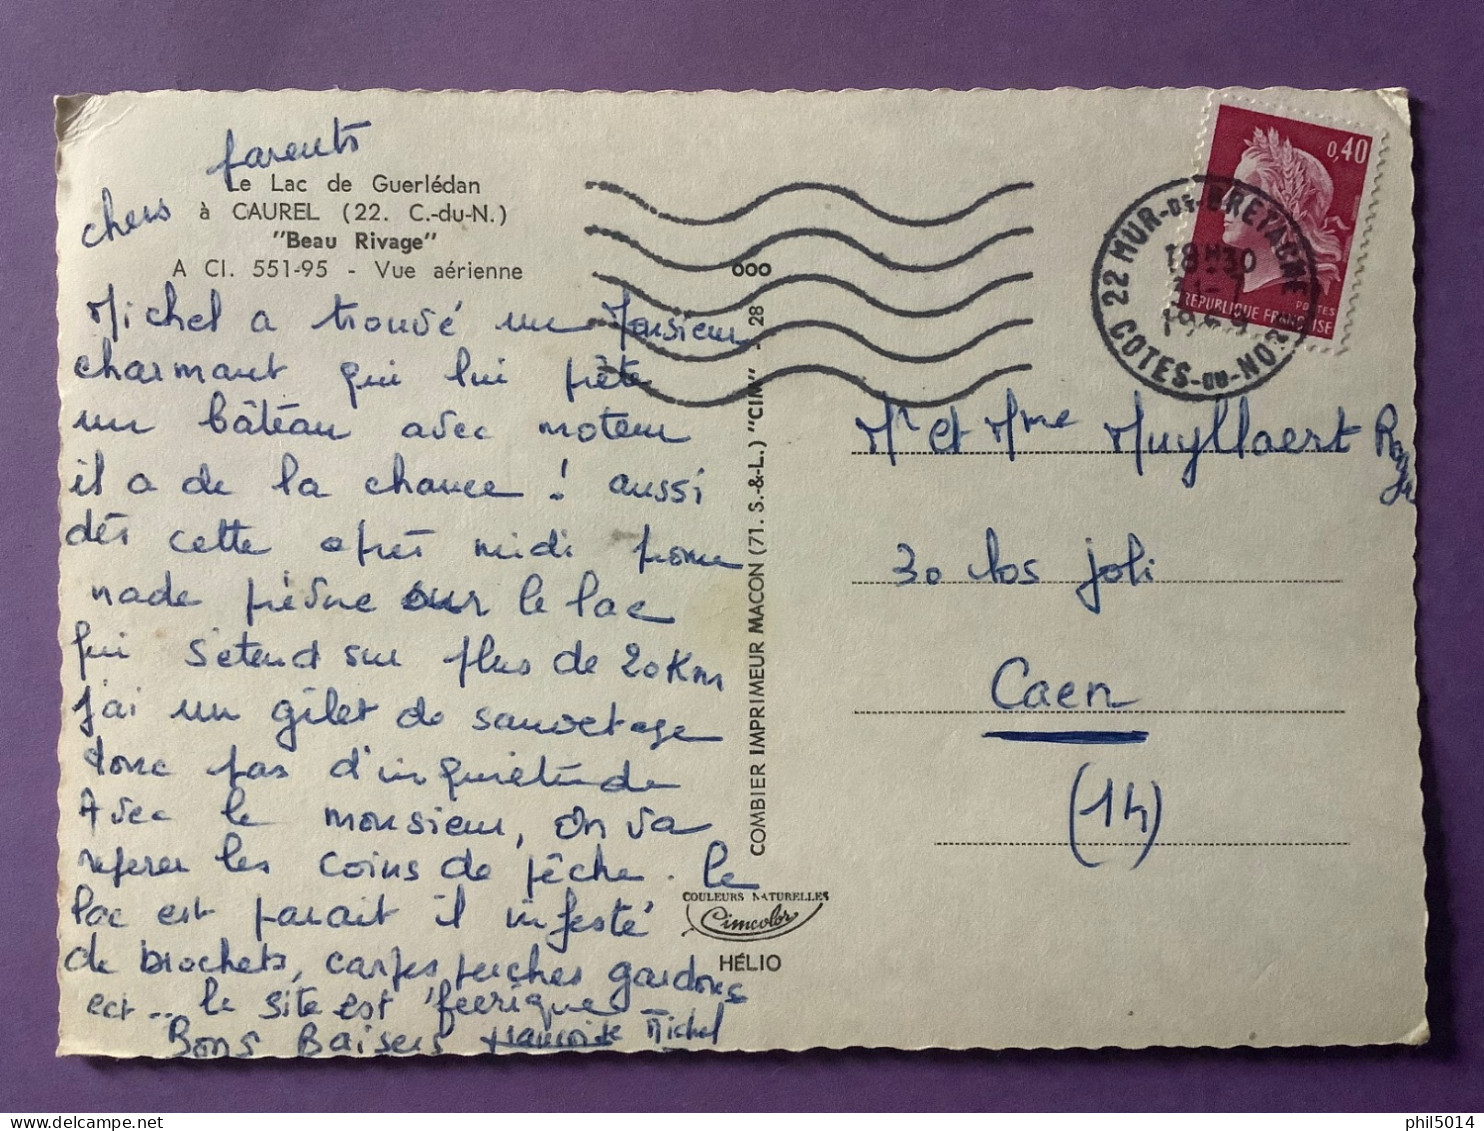 chers parents
Le Lac de Guerlédan
à CAUREL (22. C.-du-N.)
"Beau Rivage"
A CI. 551-95 - Vue aérienne
Michel a trouvé un Monsieur
charmant qui lui prête
un bâteau avec moteur
il a de la chance ! aussi
dès cette après midi prome
nade prévue sur le lac
qui s'etend sur plus de 20 Km
j'ai un gilet de sauvetage
donc pas d'inquiétude
Avec le monsieur, on va
reperer les coins de pêche. le
lac est parait il infesté
de brochets, carpes, perches gardons
ect... le site est féerique
Bons Baisers Michel
000
COMBIER IMPRIMEUR MACON (71. S.-&-L.) "CIM" - 28
COULEURS NATURELLES
Cimcolor
HÉLIO
0,40
REPUBLIQUE FRANÇAISE
POSTES
22 MUR-DE-BRETAGNE
18H30
1969
COTES-DU-NORD
Mr et Mme Muyllaert Roger
30 clos joli
Caen
(14)
phil5014